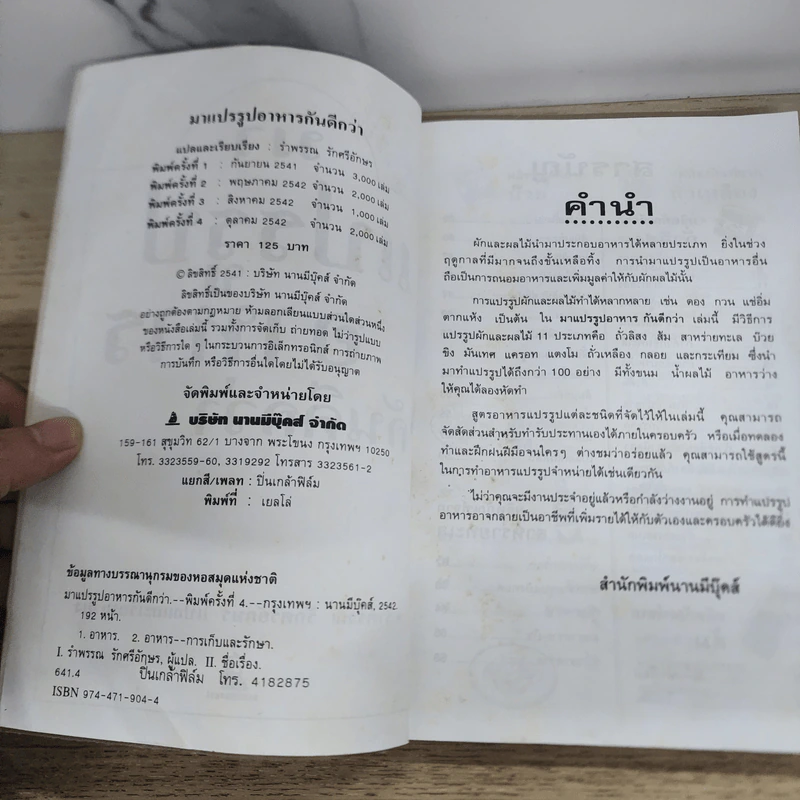 มาแปรรูปอาหารกันดีกว่า
แปลและเรียบเรียง : รำพรรณ รักศรีอักษร
พิมพ์ครั้งที่ 1 : กันยายน 2541 จำนวน 3,000 เล่ม
พิมพ์ครั้งที่ 2 : พฤษภาคม 2542 จำนวน 2,000 เล่ม
พิมพ์ครั้งที่ 3 : สิงหาคม 2542 จำนวน 1,000 เล่ม
พิมพ์ครั้งที่ 4 : ตุลาคม 2542 จำนวน 2,000 เล่ม
ราคา 125 บาท
© ลิขสิทธิ์ 2541 : บริษัท นานมีบุ๊คส์ จำกัด
ลิขสิทธิ์เป็นของบริษัท นานมีบุ๊คส์ จำกัด
อย่างถูกต้องตามกฎหมาย ห้ามลอกเลียนแบบส่วนใดส่วนหนึ่ง
ของหนังสือเล่มนี้ รวมทั้งการจัดเก็บ ถ่ายทอด ไม่ว่ารูปแบบ
หรือวิธีการใด ๆ ในกระบวนการอิเล็กทรอนิกส์ การถ่ายภาพ
การบันทึก หรือวิธีการอื่นใดโดยไม่ได้รับอนุญาต
จัดพิมพ์และจำหน่ายโดย
บริษัท นานมีบุ๊คส์ จำกัด
159-161 สุขุมวิท 62/1 บางจาก พระโขนง กรุงเทพฯ 10250
โทร. 3323559-60, 3319292 โทรสาร 3323561-2
แยกสี/เพลท : ปิ่นเกล้าฟิล์ม
พิมพ์ที่ : เยลโล่
ข้อมูลทางบรรณานุกรมของหอสมุดแห่งชาติ
มาแปรรูปอาหารกันดีกว่า.--พิมพ์ครั้งที่ 4.--กรุงเทพฯ : นานมีบุ๊คส์, 2542.
192 หน้า.
1. อาหาร. 2. อาหาร--การเก็บและรักษา.
I. รำพรรณ รักศรีอักษร, ผู้แปล. II. ชื่อเรื่อง.
641.4 ปิ่นเกล้าฟิล์ม โทร. 4182875
ISBN 974-471-904-4
คำนำ
ผักและผลไม้นำมาประกอบอาหารได้หลายประเภท ยิ่งในช่วง
ฤดูกาลที่มีมากจนถึงขั้นเหลือทิ้ง การนำมาแปรรูปเป็นอาหารอื่น
ถือเป็นการถนอมอาหารและเพิ่มมูลค่าให้กับผักผลไม้นั้น
การแปรรูปผักและผลไม้ทำได้หลากหลาย เช่น ดอง กวน แช่อิ่ม
ตากแห้ง เป็นต้น ใน มาแปรรูปอาหาร กันดีกว่า เล่มนี้ มีวิธีการ
แปรรูปผักและผลไม้ 11 ประเภทคือ ถั่วลิสง ส้ม สาหร่ายทะเล บ๊วย
ขิง มันเทศ แครอท แตงโม ถั่วเหลือง กลอย และกระเทียม ซึ่งนำ
มาทำแปรรูปได้ถึงกว่า 100 อย่าง มีทั้งขนม น้ำผลไม้ อาหารว่าง
ให้คุณได้ลองหัดทำ
สูตรอาหารแปรรูปแต่ละชนิดที่จัดไว้ให้ในเล่มนี้ คุณสามารถ
จัดสัดส่วนสำหรับทำรับประทานเองได้ภายในครอบครัว หรือเมื่อทดลอง
ทำและฝึกฝนฝีมือจนใครๆ ต่างชมว่าอร่อยแล้ว คุณสามารถใช้สูตรนี้
ในการทำอาหารแปรรูปจำหน่ายได้เช่นเดียวกัน
ไม่ว่าคุณจะมีงานประจำอยู่แล้วหรือกำลังว่างงานอยู่ การทำแปรรูป
อาหารอาจกลายเป็นอาชีพที่เพิ่มรายได้ให้กับตัวเองและครอบครัวได้ดียิ่ง
สำนักพิมพ์นานมีบุ๊คส์